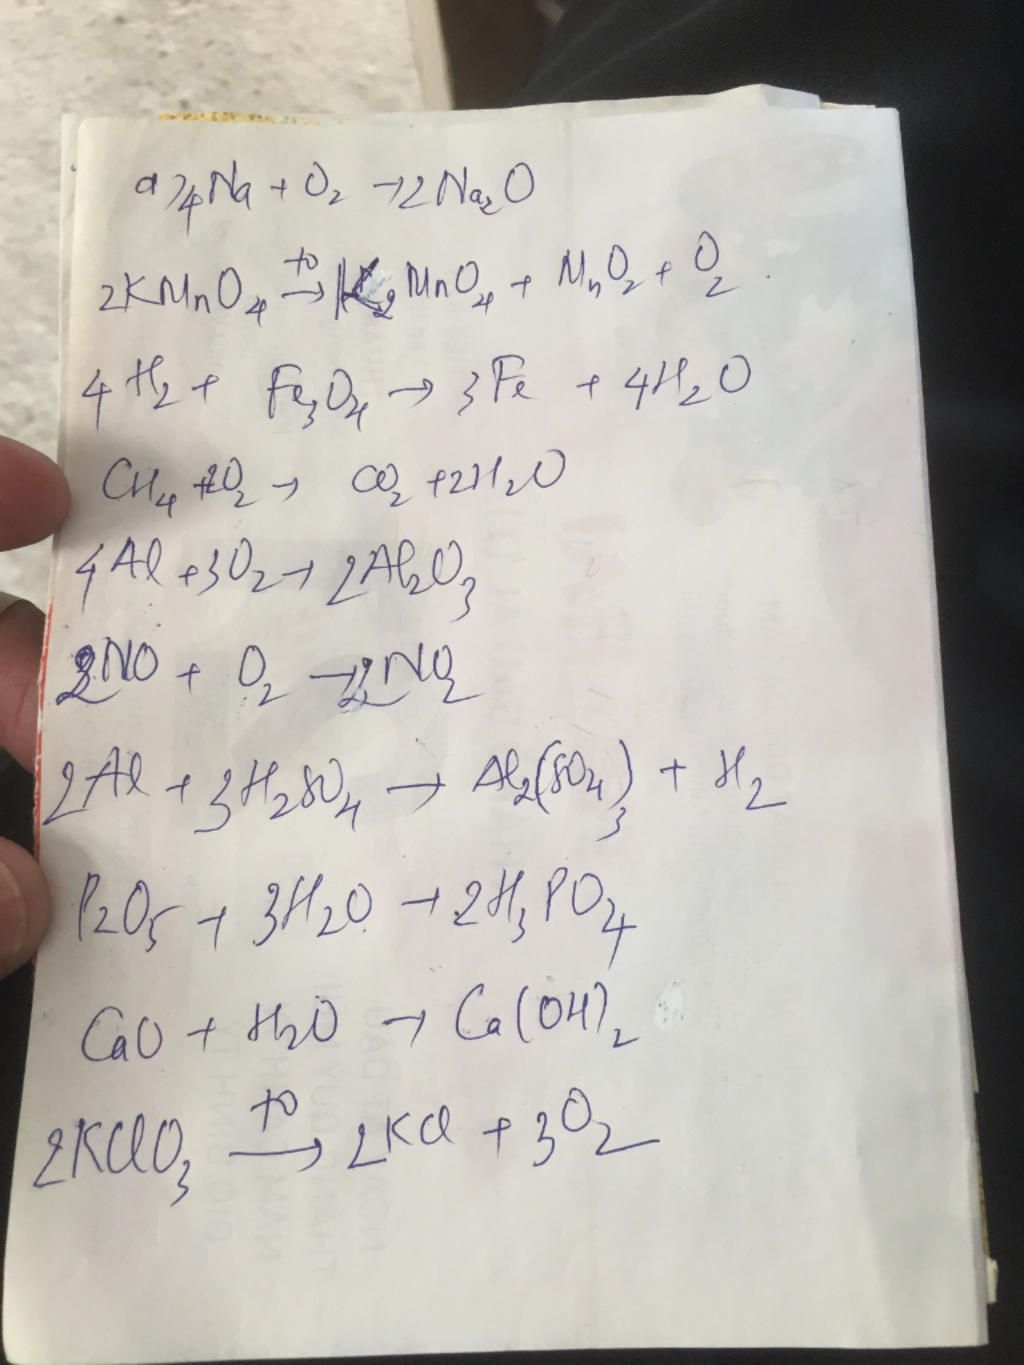 a) 4Na + O₂ → 2Na₂O
2KMnO₄ →(t⁰) K₂MnO₄ + MnO₂ + O₂
4H₂ + Fe₃O₄ → 3Fe + 4H₂O
CH₄ + 2O₂ → CO₂ + 2H₂O
4Al + 3O₂ → 2Al₂O₃
2NO + O₂ → 2NO₂
2Al + 3H₂SO₄ → Al₂(SO₄)₃ + H₂
P₂O₅ + 3H₂O → 2H₃PO₄
CaO + H₂O → Ca(OH)₂
2KClO₃ →(t⁰) 2KCl + 3O₂